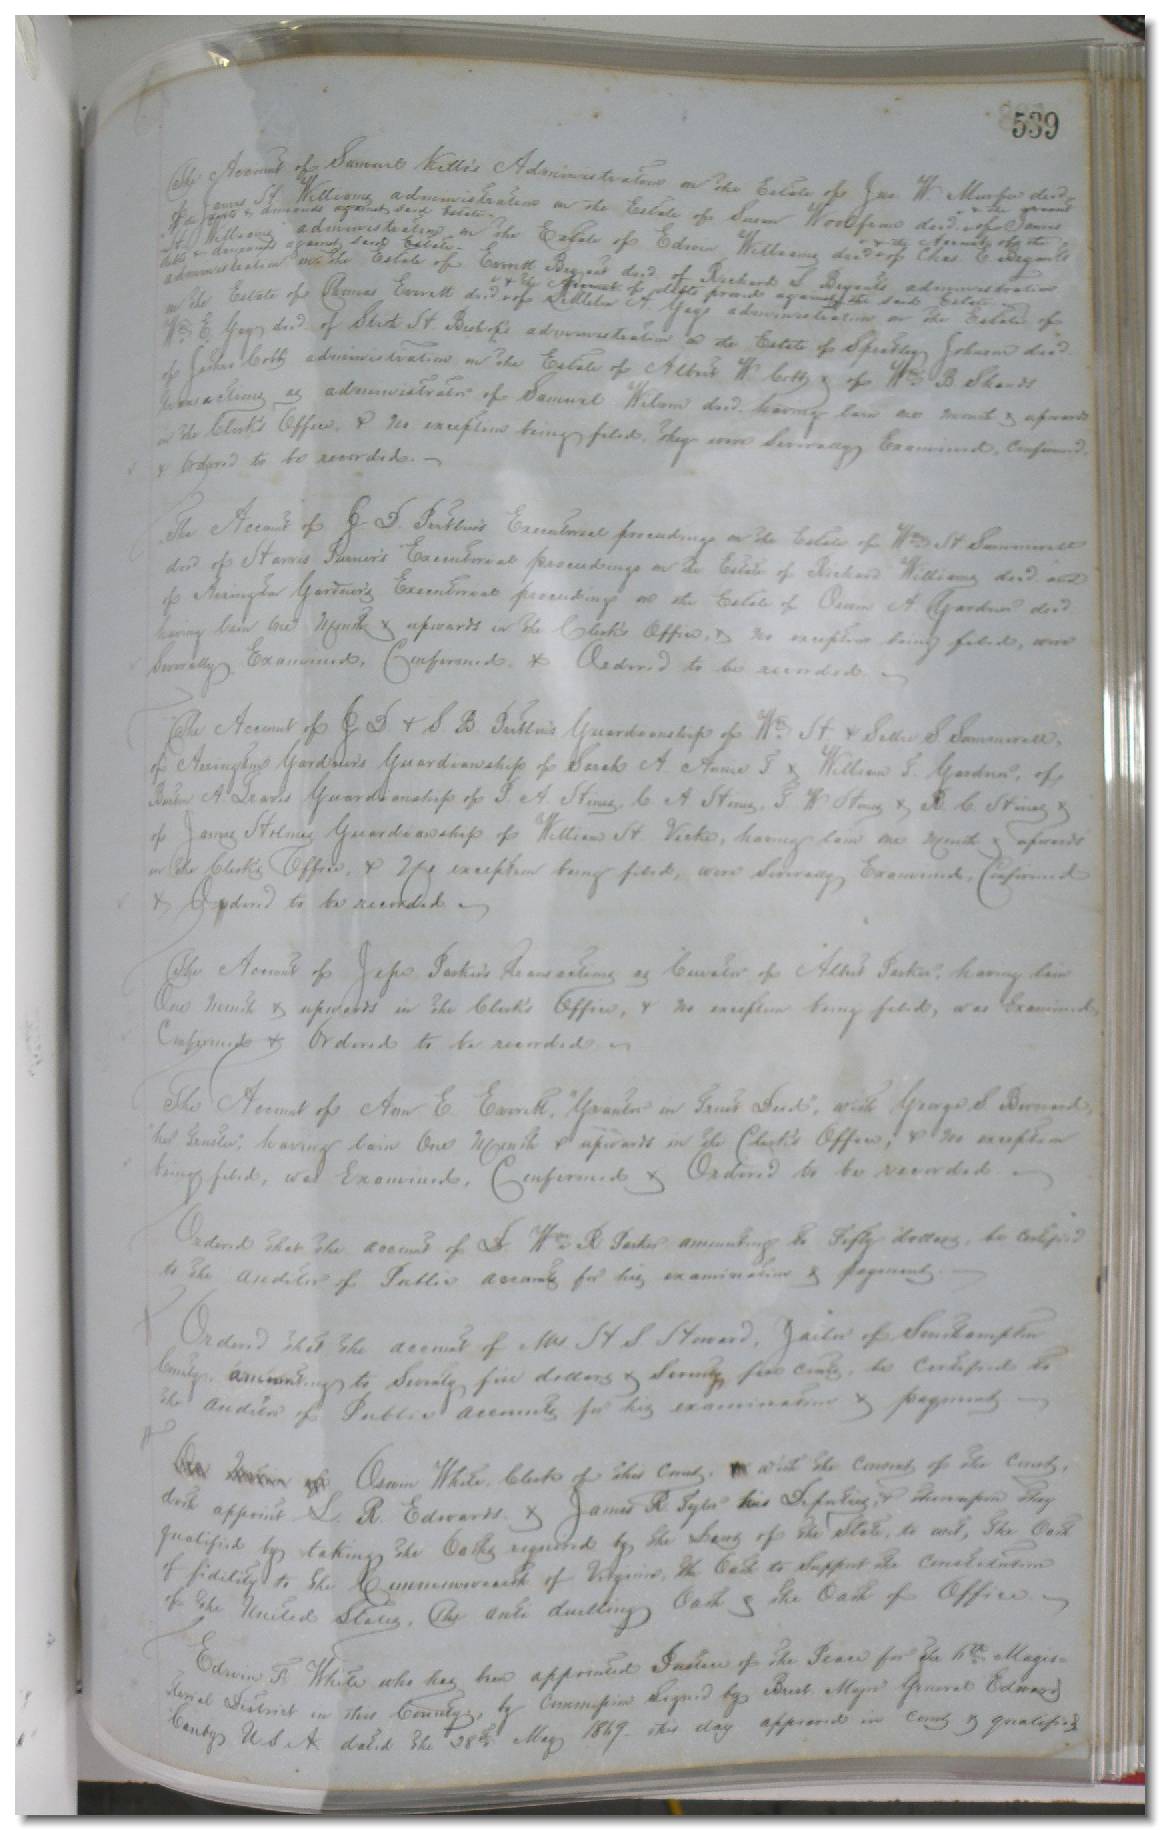 539
The Account of Samuel Kello's Administration on the Estate of Jno. W. Murfee decd.
of James St. Williams administration on the Estate of Susan Woodfine decd. & the account
of debts & demands against said Estate. of James
St. Williams administration on the Estate of Edwin Williams decd. & the Account of the
debts & demands against said Estate. of Chas. E. Bryant's
administration on the Estate of Everett Bryant decd. of Richard S Bryant's administration
on the Estate of Thomas Everett decd. & the Account of debts proved against the said Estate.
of A. Gay's administration on the Estate of
Wm E. Gay decd. of St. Bishop's administration on the Estate of Spratley Johnson decd.
of James Cobb administration on the Estate of Albert W. Cobb & of Wm B. Shands
transactions as administrator of Samuel Wilson decd. having lain one month & upwards
in the Clerk's Office, & no exception being filed, they were Severally Examined, Confirmed,
& Ordered to be recorded.
The Account of J D. Pretlow's Executorial proceedings on the Estate of Wm St Summerell
decd of Turner's Executorial proceedings on the Estate of Richard Williams decd. and
of Arrington Gardner's Executorial proceedings on the Estate of Orson A Gardner decd.
having lain one Month & upwards in the Clerk's Office, & no exception being filed, were
Severally Examined, Confirmed, & Ordered to be recorded.
The Account of J D & S. B. Pretlow's Guardianship of Wm St & Sallie S Summerell,
of Arrington Gardner's Guardianship of Sarah A. Annie T & William T. Gardner, of
A. Travis Guardianship of P. A. Stines, C. A Stines, T W Stines & R. C. Stines &
of James Holmes Guardianship of William St Vicke, having lain one Month & upwards
in the Clerk's Office, & No exception being filed, were Severally Examined, Confirmed
& Ordered to be recorded
The Account of Jesse Parker's transactions as Curator of Albert Parker, having lain
One Month & upwards in the Clerk's Office, & no exception being filed, was Examined,
Confirmed & Ordered to be recorded.
The Account of Ann E. Everett, "Grantor in Trust Deed", with George S. Bernard,
"her Trustee", having lain One Month & upwards in the Clerk's Office, & no exception
being filed, was Examined, Confirmed & Ordered to be recorded
Ordered that the account of Dr Wm R Parker amounting to Fifty dollars, be certified
to the auditor of Public accounts for his examination & payment.
Ordered that the account of St S Steward, Jailor of Southampton
County, amounting to Seventy five dollars & Seventy five cents, be certified to
the auditor of Public accounts for his examination & payment
Oswin White, Clerk of this Court, with the consent of the Court,
doth appoint L. R. Edwards & James R Tyler his Deputies, & thereupon they
qualified by taking the Oaths required by the Laws of the State, to wit, The Oath
of fidelity to the Commonwealth of Virginia, the Oath to Support the constitution
of the United States, The anti duelling Oath & the Oath of Office
Edwin F. White who has been appointed Justice of the Peace for the Magis=
terial District in this County, by commission Signed by Brevt. Major General Edward
Canby U. S. A dated the 28th May 1869 this day appeared in court & qualified